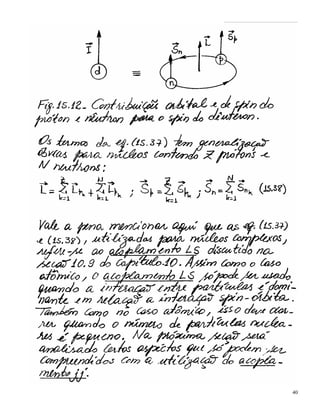 I⃗ S⃗n L⃗ S⃗p
d ≡ n p
Fig. 15.12_ Contribuição orbital e de spin do
próton e nêutron para o spin do dêuteron.
Os termos da eq. (15.37) têm generalização
óbvias para núcleos contendo Z prótons e
N neutrons:
L⃗ = Σ(k=1→Z) L⃗k + Σ(k=1→N) L⃗k ; S⃗p = Σ(k=1→Z) S⃗k ; S⃗n = Σ(k=1→N) S⃗k (15.38)
Vale a pena mencionar aqui que as eq. (15.37)
e (15.38), utilizadas para núcleos complexos,
refere-se ao acoplamento LS discutido na
seção 10.9 do Capítulo 10. Assim como o caso
atômico, o acoplamento LS só pode ser usado
quando a interação entre partículas é domi-
nante em relação a interação spin-orbita.
Também como no caso atômico, isso deve ocor-
rer quando o número de partículas nuclea-
res é pequeno. Na próxima seção será
analisado certos aspectos que só podem ser
compreendidos com a utilização do acopla-
mento jj.
40